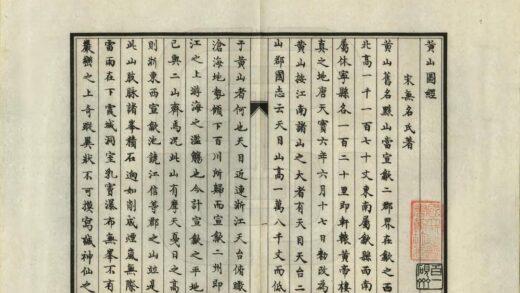 黃山圖經
宋無名氏著
黃山舊名黟山當宣歙二郡界在歙之西
北高一千一百七十丈東南屬歙縣西南
屬休寧縣各一百二十里即軒轅黃帝棲
真之地唐天寶六年六月十七日勅改為
黃山按江南諸山之大者有天目天台二
山郡國志云天目山高一萬八千丈而低
于黃山者何也天目近連浙江天台俯瞰
滄海地勢傾下百川所歸而宣歙二州即
江之上游海之濫觴也今計宣歙之平地
已與二山齊焉況此山有摩天戛日之高
則浙東西宣歙池饒江信等郡之山並是
此山脉諸峯積石迥如削成煙嵐無際
雷雨在下霞城洞室乳竇瀑布無峯不有
巖巒之上奇蹤異狀不可摸寫誠神仙之